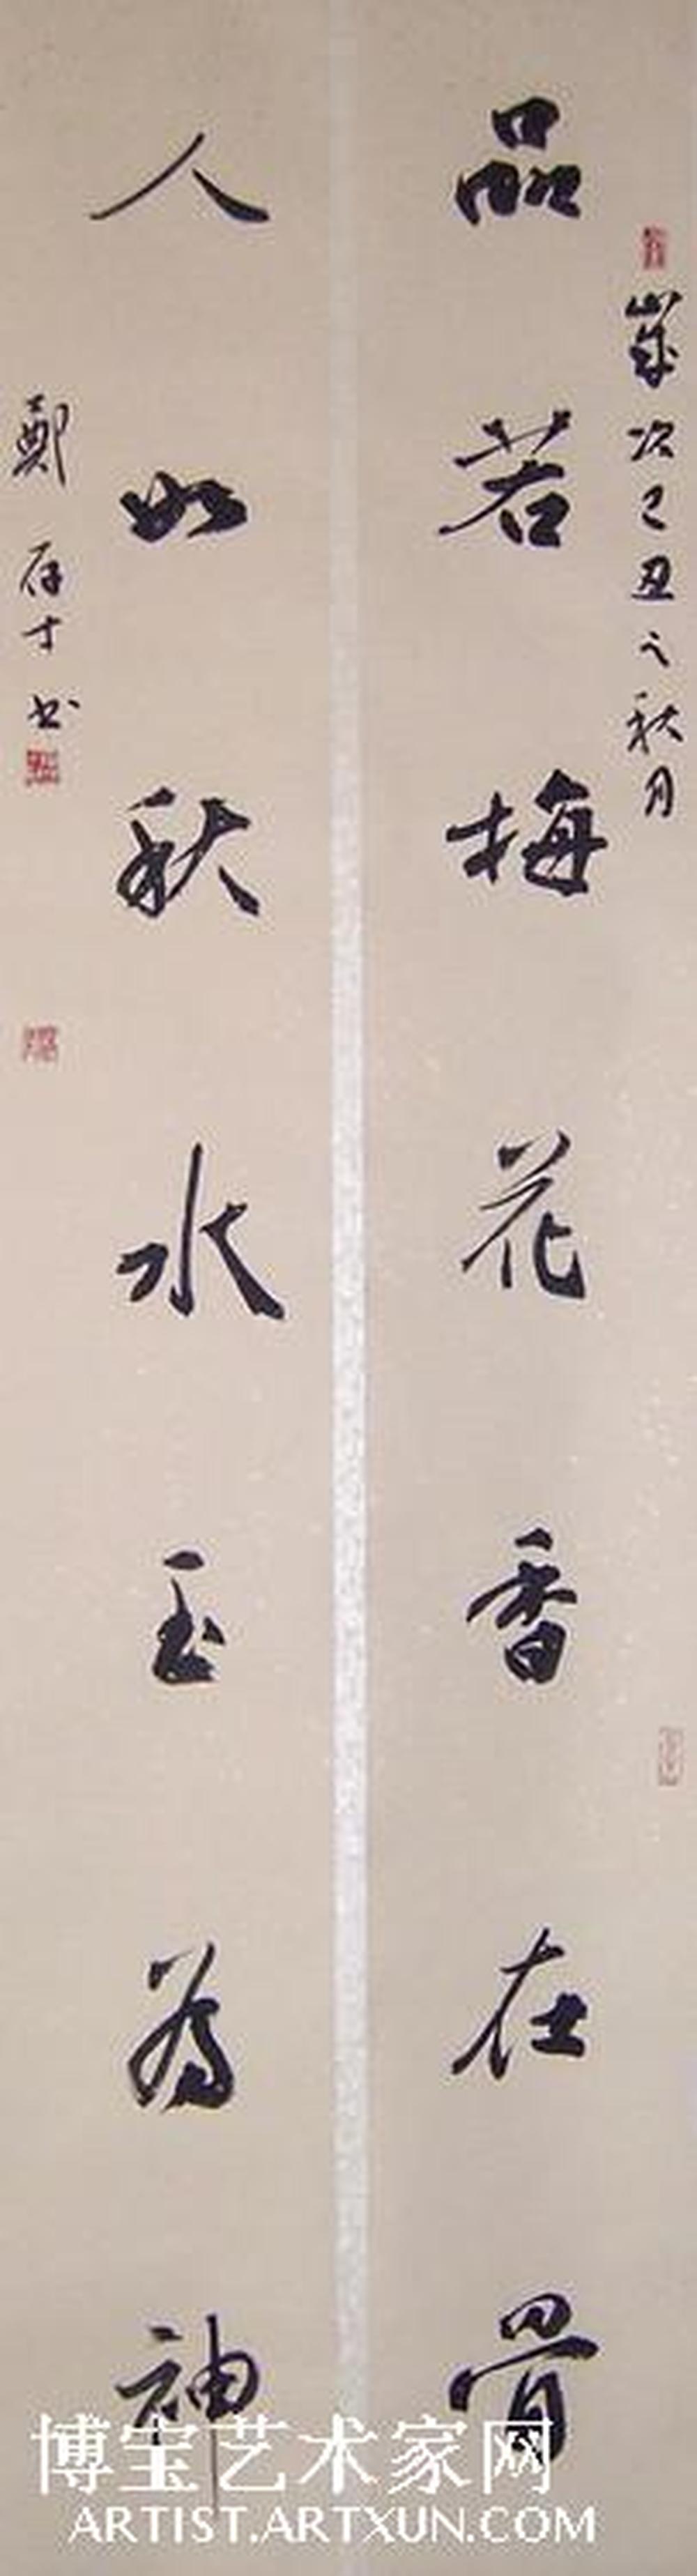 歲次己丑之秋月
品若梅花香在骨
人如秋水玉為神
鄭存才書
博宝艺术家网
ARTIST.ARTXUN.COM